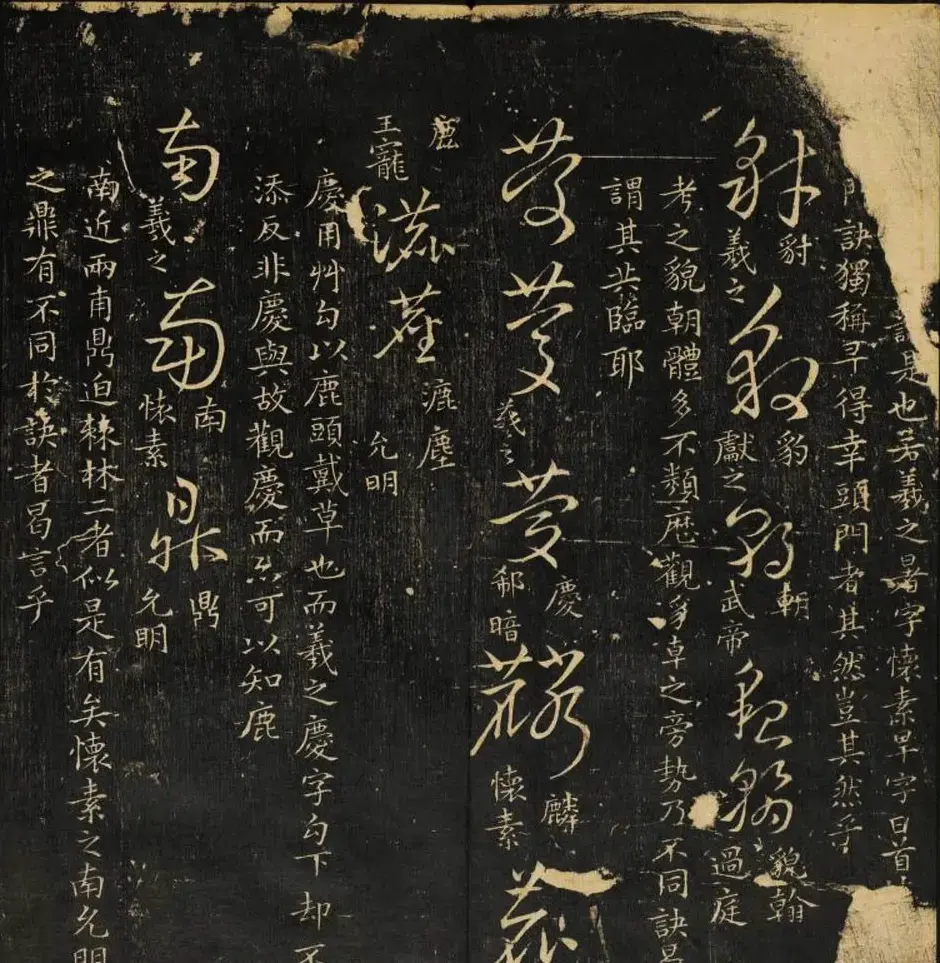 是也若羲之暑字懷素旱字日首
門訣獨稱早得幸頭門者其然豈其然乎
豺豺羲之豹豹獻之朝朝武帝貌翰貌翰過庭
考之貌朝體多不類歷觀爭卓之旁勢乃不同訣曷
謂其共臨耶
慶慶羲之慶慶郗愔麟麟懷素
鹿王寵漉塵漉塵允明
慶用艸勾以鹿頭戴草也而羲之慶字勾下却不
添反非慶與故觀慶而亦可以知鹿
南羲之南南懷素鼎鼎允明
南近兩甫鼎迫棘林二者似是有矣懷素之南允明
之鼎有不同於訣者曷言乎